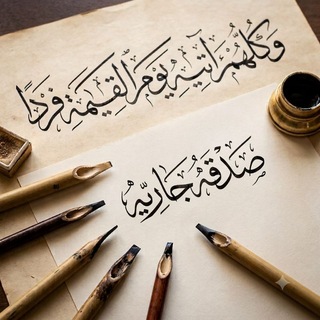 وَكُلُّهُمْ آتِيهِ يَوْمَ الْقِيٰمَةِ فَرْدًا
صَدَقَةٌ جَارِيَّه